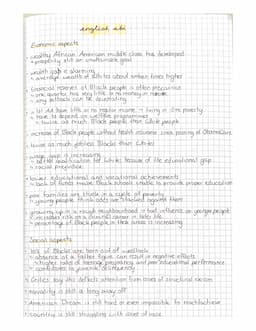 english abi
Economic aspects
wealthy African American middle class has developed
↳ prosperity still an unattainable goal
wealth gap is alarming
↳ average wealth of Whites about sixteen times higher
financial reserves of Black people is often precarious
↳ one quarter has very little or no money in
↳ any setback can be devastating
1/4 AA have little or no regular income → living in dire poverty
↳ have to depend on welfare programmes
↳ twice as much Black people than white people
increase of Black people without health insurance since passing of Obamacare
twice as much jobless Blacks than Whites
wage gap is increasing
↳ better qualification for Whites because of the educational gap
↳ racial prejudice
lower educational and vocational achievements
↳ lack of funds make Black schools unable to provide proper education
poor families are stuck in a cycle of poverty
↳ young people think odds are stacked against them
growing up in a rough neighbourhood = bad influence on younger people
↳ increases risk of a criminal career in later life
↳ percentage of Black people in these areas is increasing
Social aspects
of Blacks are born out of wedlock
↳ absence of a father figure can result in negative effects
↳ higher rates of teenage pregnancy and poor educational performance
↳ contributes to juvenile delinquency
Critics say this deflects attention from issues of structural racism
equality is still a long way off
American Dream is still hard or even impossible to reach/achieve
country is still struggling with issues of race